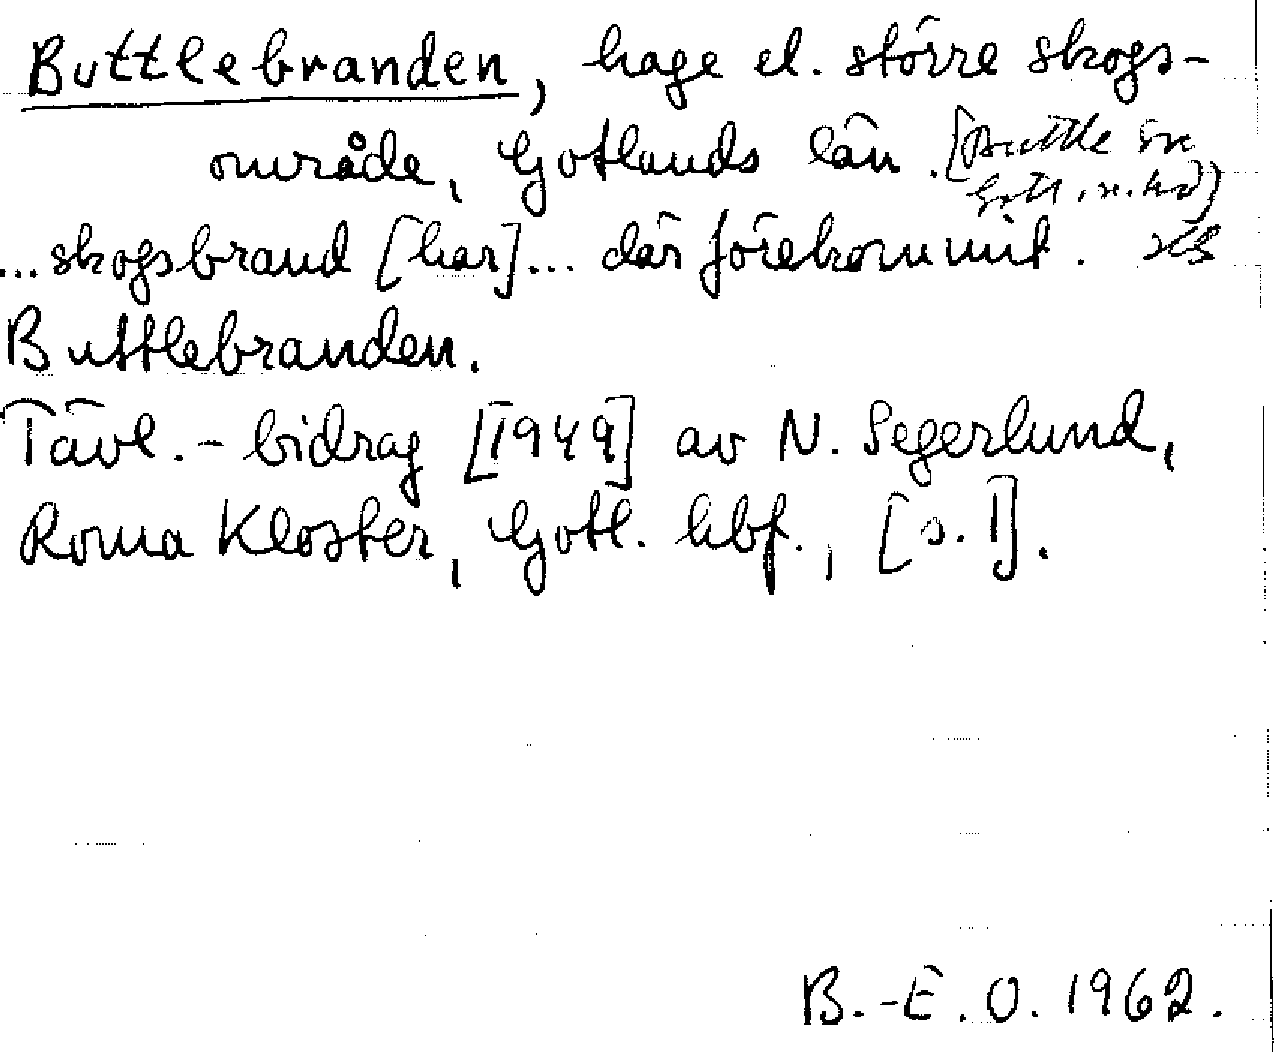 Buttlebranden, hage el. större skogs-
område, Gotlands län. [Buttle sn
Gotl. n. hd]
... skogsbrand [har]... där förekommit.
Buttlebranden.
Tävl.-bidrag [1949] av N. Segerlund,
Roma Kloster, Gotl. hbf., [s. 1].
B.-E. O. 1962.